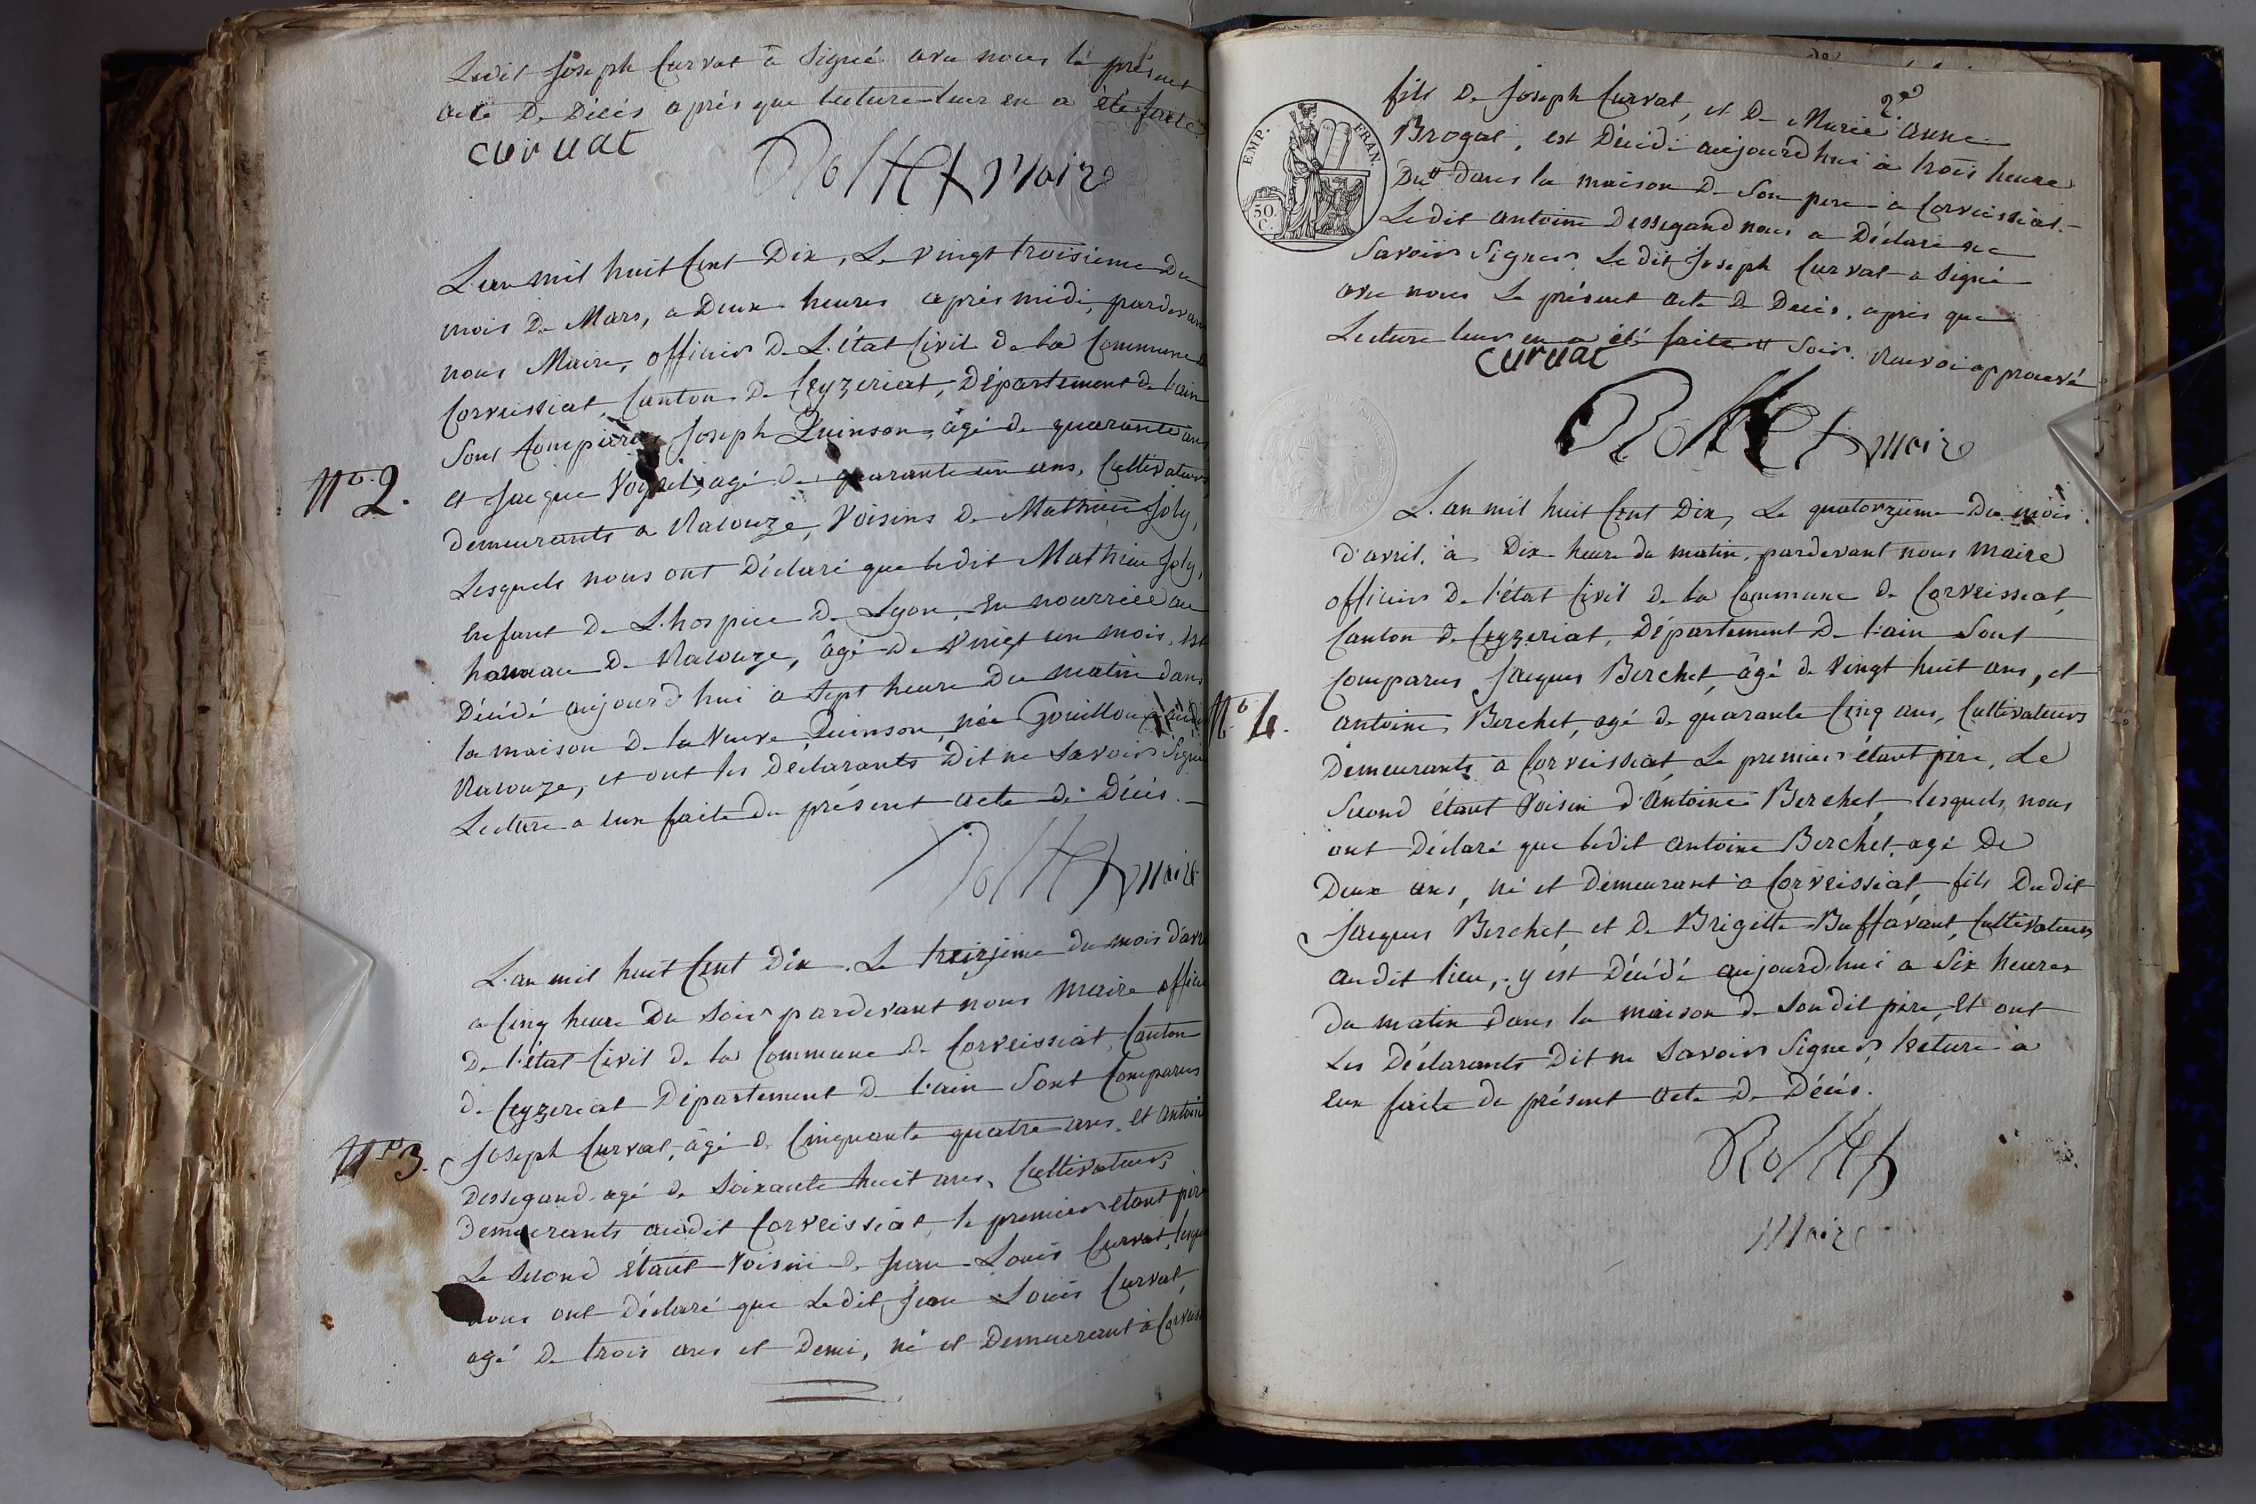 Ledit Joseph Curvat a Signé avec nous le présent
acte De Décès après que lecture leur en a été faite
curuat
Rollet Maire
L'an mil huit Cent Dix, Le vingt troisième Du
mois De Mars, a Deux heures après midi, pardevant
nous Maire, officier De L'état Civil de la Commune de
Corveissiat, Canton De Ceyzeriat, Département de l'ain
Sont Comparus Joseph Quinson, âgé de quarante ans
No. 2.
et Jacque agé De quarante un ans, Cultivateurs
demeurants a Racouze, Voisins De Mathieu Joly,
Lesquels nous ont Déclaré que ledit Mathieu Joly,
Enfant De L'hospice De Lyon, En nourrice au
hameau De Racouze, âgé De Vingt un mois, est
Décédé aujourd'hui a Sept heure Du matin dans
la maison De la Veuve Quinson, née Gouillon
Racouze, et ont les Déclarants Dit ne Savoir Signer
Lecture a eux faite du présent acte De Décès.
Rollet maire
L'an mil huit Cent dix. Le treizième du mois d'avril
a Cinq heure Du Soir pardevant nous Maire officier
De l'état Civil de la Commune de Corveissiat, Canton
de Ceyzeriat Département De l'ain Sont Comparus
No 3.
Joseph Curvat, âgé De Cinquante quatre ans, et Antoine
Dessegand agé de Soixante huit ans, Cultivateurs
Demeurants audit Corveissiat, le premier etant père
Le Second étant Voisin De Jean Louis Curvat, lesquels
nous ont déclaré que Ledit Jean Louis Curvat,
agé De trois ans et Demi, né et Demeurant à Corveissiat
2e
fils De Joseph Curvat, et De Marie anne
Brogat, est Décédé aujourd'hui à trois heure
Du # dans la maison De Son pere a Corveissiat.
Ledit Antoine Dessegand nous a Déclaré ne
Savoir Signer. Ledit Joseph Curvat a Signé
avec nous Le présent acte De Décès, après que
Lecture leur en a été faite # Soir. Renvoi approuvé
EMP. FRAN.
50. C.
curuat
Rollet maire
L'an mil huit Cent Dix, Le quatorzième Du mois
d'avril, à Dix heure du matin, pardevant nous Maire
officier De l'état Civil de la Commune de Corveissiat,
Canton de Ceyzeriat, Département De l'ain Sont
Comparus Jacques Berchet, âgé de Vingt huit ans, et
No 4.
antoine Berchet, agé de quarante Cinq ans, Cultivateurs
Demeurants a Corveissiat, Le premier étant père, Le
Second étant Voisin d'Antoine Berchet, lesquels nous
ont Déclaré que ledit antoine Berchet, agé De
Deux ans, né et Demeurant a Corveissiat, fils Dudit
Jacques Berchet, et De Brigitte Buffavant, Cultivateurs
audit lieu, y est Décédé aujourd'hui a Six heures
du matin dans la maison de Sondit père, Et ont
Les Déclarants Dit ne Savoir Signer, lecture a
eux faite du présent acte De Décès.
Rollet
Maire